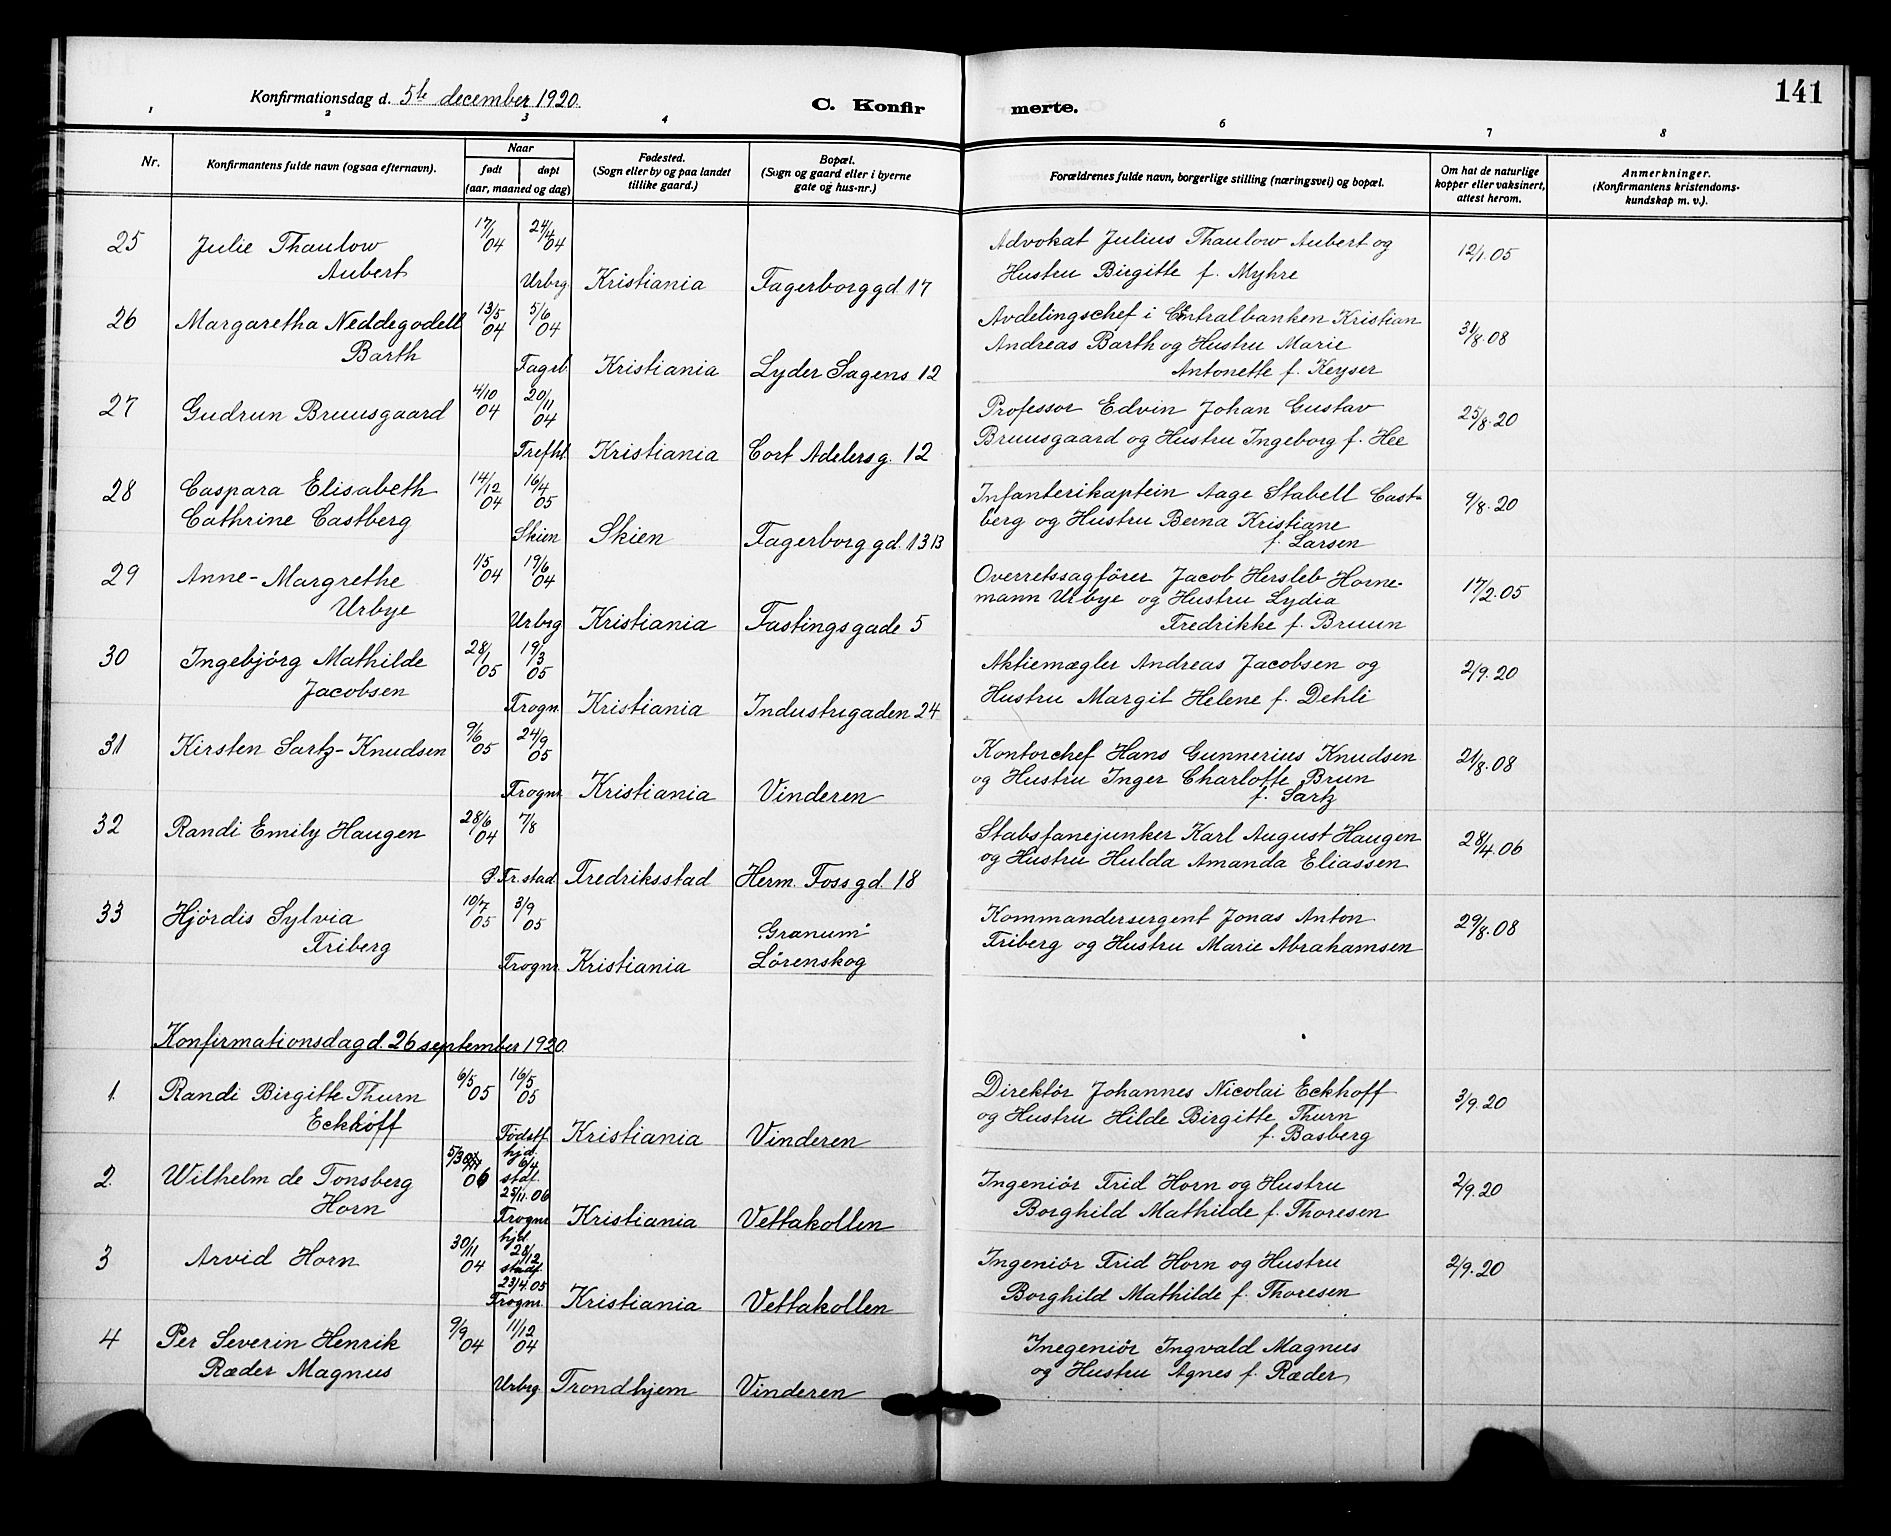 141
Konfirmationsdag d. 5te december 1920.
C. Konfir merte.
1 2 3 4 6 7 8
Nr.
Konfirmantens fulde navn (ogsaa efternavn).
Naar
født døpt
(aar, maaned og dag)
Fødested.
(Sogn eller by og paa landet
tillike gaard.)
Bopæl.
(Sogn og gaard eller i byerne
gate og hus-nr.)
Forældrenes fulde navn, borgerlige stilling (næringsvei) og bopæl.
Om hat de naturlige
kopper eller vaksinert,
attest herom.
Anmerkninger.
(Konfirmantens kristendoms-
kundskap m. v.).
25 Julie Thaulow 17/1 04 24/4 04 Advokat Julius Thaulow Aubert og 12/1.05
Aubert Urbrg. Kristiania Fagerborggd. 17 Hustru Birgitte f. Myhre
26 Margaretha Neddegodell 13/5 04 5/6 04 Avdelingschef i Centralbanken Kristian 31/8.08
Barth Andreas Barth og Hustru Marie
Fagrb. Kristiania Lyder Sagens 12 Antonette f. Keyser
27 Gudrun Bruusgaard 4/10 04 20/11 04 Professor Edvin Johan Gustav 25/8.20
Trefht. Kristiania Cort Adelersg. 12 Bruusgaard og Hustru Ingeborg f. Hee
28 Caspara Elisabeth 14/12 04 16/4 05 Infanterikaptein Aage Stabell Cast- 9/8.20
Cathrine Castberg berg og Hustru Berna Kristiane
Skien Skien Fagerborggd. 13 B f. Larsen
29 Anne-Margrethe 1/5 04 19/6 04 Overretssagfører Jacob Hersleb Horne- 17/2.05
Urbye mann Urbye og Hustru Lydia
Urbrg Kristiania Fastingsgade 5 Fredrikke f. Bruun
30 Ingebjørg Mathilde 28/1 05 19/3 05 Aktiemægler Andreas Jacobsen og 2/9.20
Jacobsen Frogn. Kristiania Industrigaden 24 Hustru Margit Helene f. Dehli
31 Kirsten Sartz-Knudsen 9/6 05 24/9 05 Kontorchef Hans Gunnerius Knudsen 21/8.08
og Hustru Inger Charlotte Brun
Frognr. Kristiania Vinderen f. Sartz
32 Randi Emily Haugen 28/6 04 7/8 Stabsfanejunker Karl August Haugen 28/4.06
Ø. Fr.stad Fredriksstad Herm. Fossgd. 18 og Hustru Hulda Amanda Eliassen
33 Hjørdis Sylvia 10/7 05 3/9 05 "Granum" Kommandersergent Jonas Anton 29/8.08
Friberg Frognr. Kristiania Lørenskog Friberg og Hustru Marie Abrahamsen
Konfirmationsdag d. 26 september 1920.
1. Randi Birgitte Thurn 6/5 05 16/5 05 Direktør Johannes Nicolai Eckhoff 3/9.20
Eckhoff og Hustru Hilde Birgitte Thurn
Fødstf. Kristiania Vinderen f. Basberg
2. Wilhelm de Tonsberg 5/3 06 hjd. 6/4 stdf. 25/11.06 Ingeniør Frid Horn og Hustru 2/9.20
Horn Frognr. Kristiania Vettakollen Borghild Mathilde f. Thoresen
3 Arvid Horn 30/11 04 hjd. 28/12 stadf. 23/4.05 Ingeniør Frid Horn og Hustru 2/9.20
Frognr. Kristiania Vettakollen Borghild Mathilde f. Thoresen
4 Per Severin Henrik 9/9 04 11/12 04 Inegeniør Ingvald Magnus
Ræder Magnus Urbrg. Trondhjem Vinderen og Hustru Agnes f. Ræder